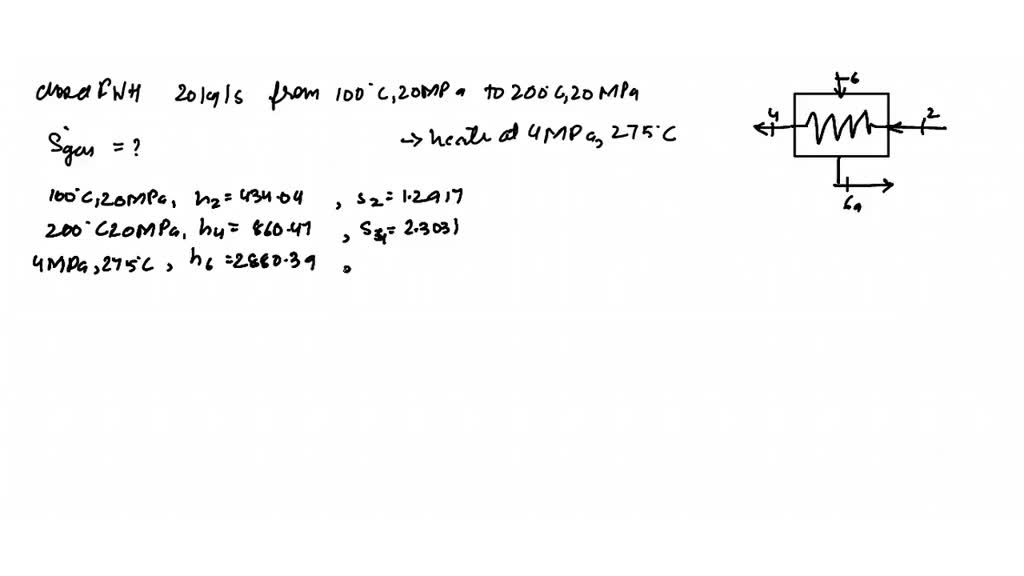 closed FWH 20kg/s from 100°C, 20MPa to 200°C, 20MPa
Ṡgen = ? → heate at 4MPa, 275°C
100°C, 20MPa, h2 = 434.04 , s2 = 1.2917
200°C 20MPa, h4 = 860.47 , s4 = 2.3031
4MPa, 275°C, h6 = 2880.39 ,
6
4
2
6a